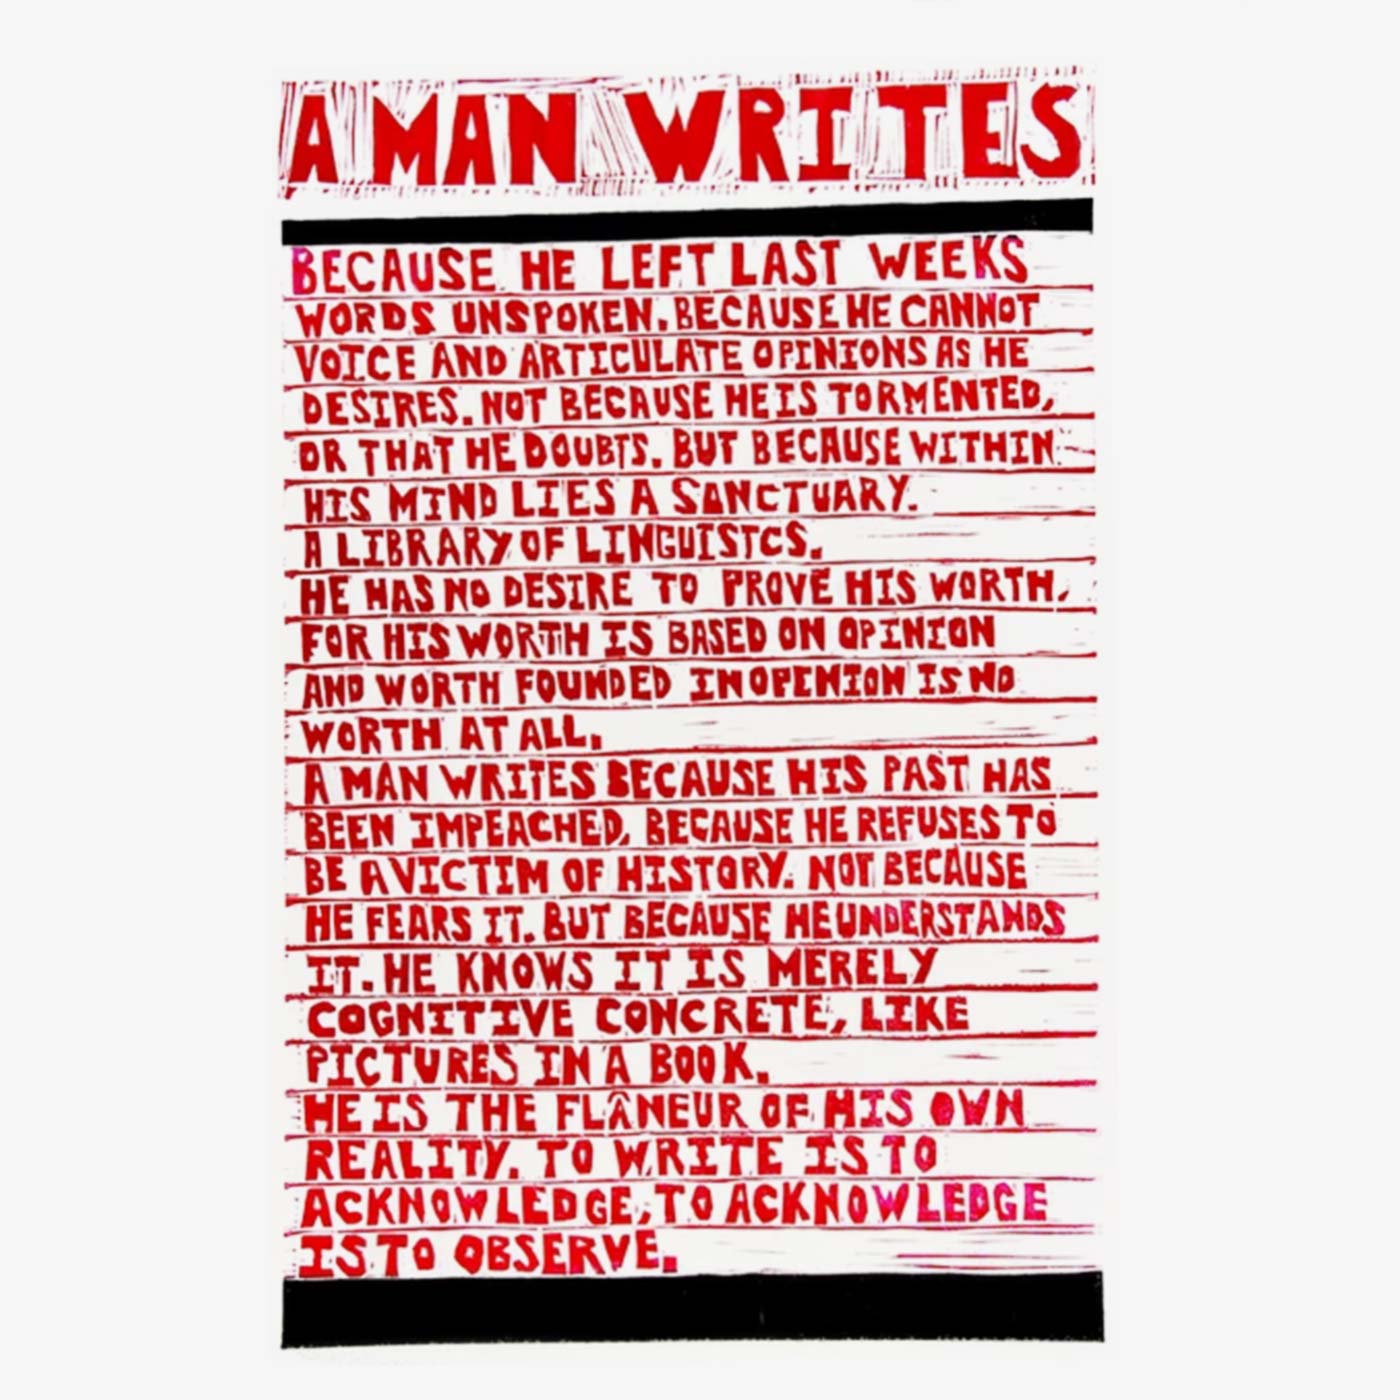 A MAN WRITES
BECAUSE HE LEFT LAST WEEKS
WORDS UNSPOKEN. BECAUSE HE CANNOT
VOICE AND ARTICULATE OPINIONS AS HE
DESIRES. NOT BECAUSE HE IS TORMENTED,
OR THAT HE DOUBTS. BUT BECAUSE WITHIN
HIS MIND LIES A SANCTUARY.
A LIBRARY OF LINGUISTCS.
HE HAS NO DESIRE TO PROVE HIS WORTH,
FOR HIS WORTH IS BASED ON OPINION
AND WORTH FOUNDED IN OPENION IS NO
WORTH AT ALL.
A MAN WRITES BECAUSE HIS PAST HAS
BEEN IMPEACHED, BECAUSE HE REFUSES TO
BE A VICTIM OF HISTORY. NOT BECAUSE
HE FEARS IT. BUT BECAUSE HE UNDERSTANDS
IT. HE KNOWS IT IS MERELY
COGNITIVE CONCRETE, LIKE
PICTURES IN A BOOK.
HE IS THE FLÂNEUR OF HIS OWN
REALITY. TO WRITE IS TO
ACKNOWLEDGE, TO ACKNOWLEDGE
IS TO OBSERVE.